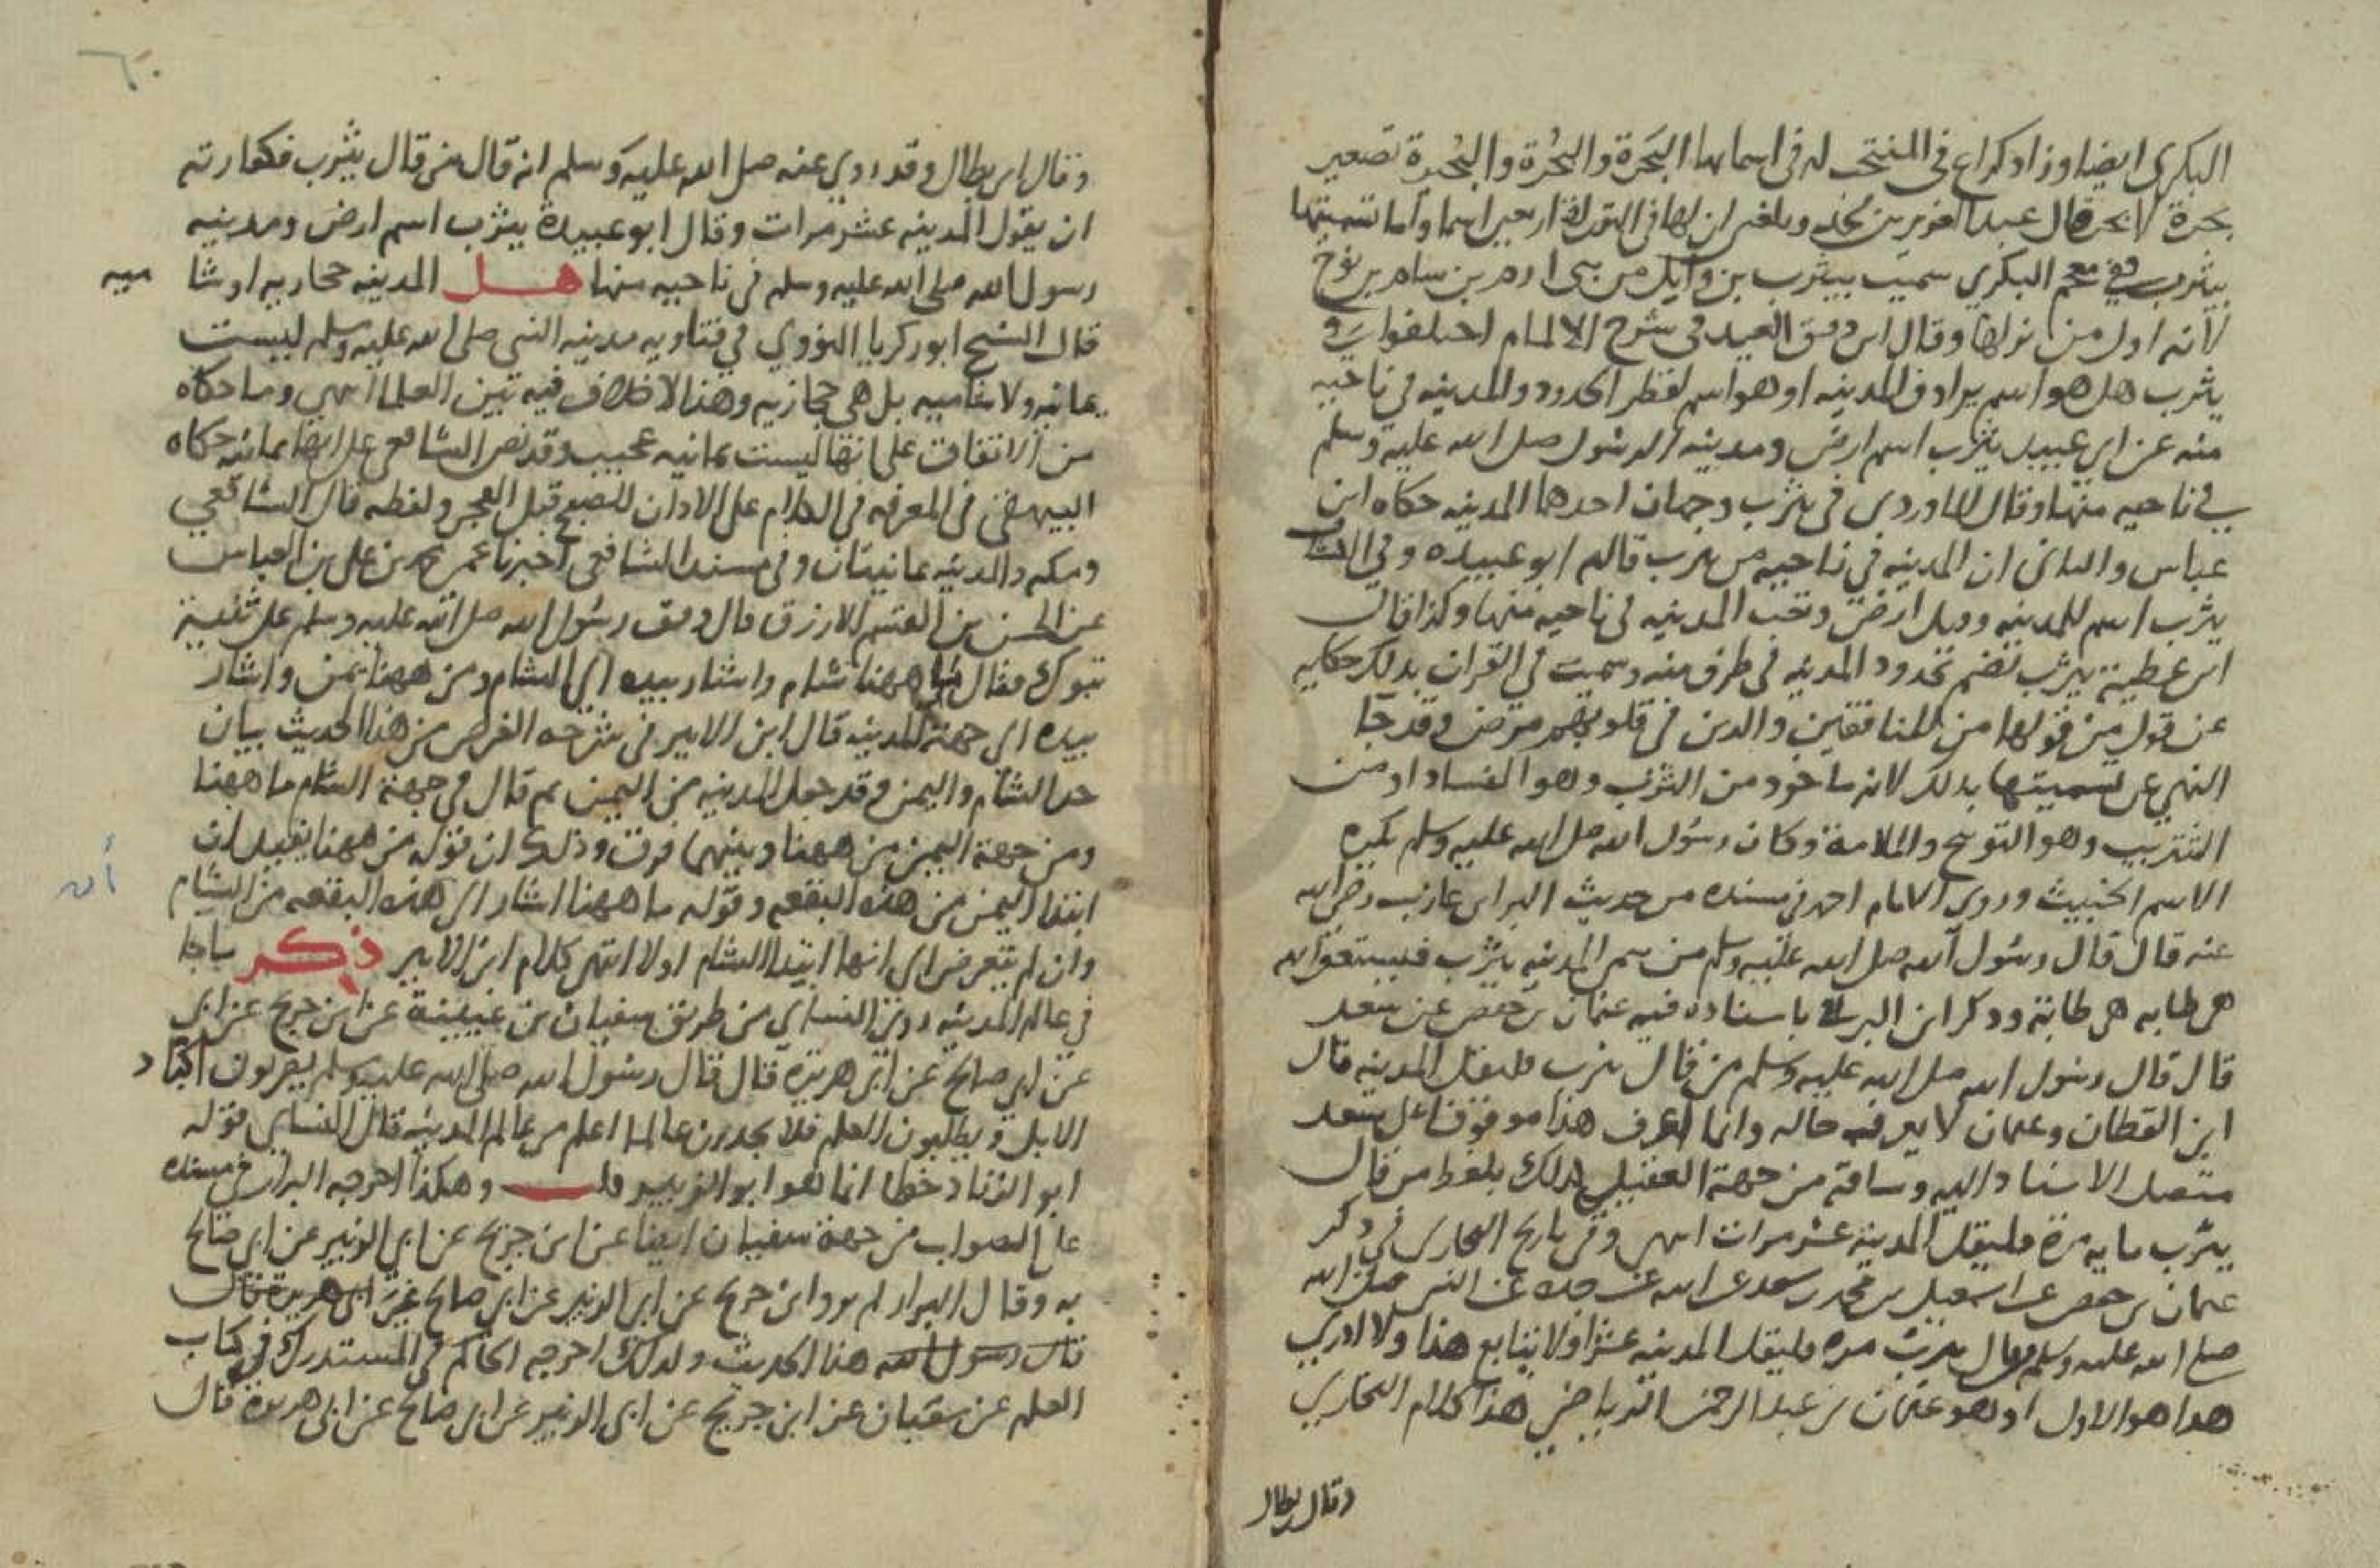 البكري ايضا وزاد كراع في المنتخب له في اسمائها البَحَرَة والبُحْرَة والبُحَيرة تصغير
بحرة قال عبد العزيز بن محمد وبلغني ان لها في التوراة اربعين اسما واما تسميتها
بيثرب ففي معجم البكري سميت بيثرب بن وايل من بني ارم بن سام بن نوح
لانه اول من نزلها وقال ابن دقيق العيد في شرح الالمام اختلفوا في
يثرب هل هو اسم يرادف المدينه او هو اسم لقطر محدود والمدينه في ناحيه
منه عن ابي عبيده يثرب اسم ارض ومدينه الرسول صلى الله عليه وسلم
في ناحيه منها وقال الماوردي في يثرب وجهان احدهما المدينه حكاه ابن
عباس والثاني ان المدينه في ناحيه من يثرب قاله ابو عبيده وفي
يثرب اسم للمدينه وقيل ارض وتحت المدينه في ناحيه منها وكذا قال
ابن عطية يثرب تضم محدود المدينه في طرف منه وسميت في القران بذلك حكايه
عن قول من قولها من المنافقين والذين في قلوبهم مرض وقد جا
النهي عن تسميتها بذلك لانه ماخود من الثرب وهو الفساد او من
التثريب وهو التوبيخ والملامة وكان رسول الله صلى الله عليه وسلم يكره
الاسم الخبيث وروى الامام احمد في مسنده من حديث البرا بن عازب رضي الله
عنه قال قال رسول الله صلى الله عليه وسلم من سمى المدينه يثرب فليستغفر الله
هي طابه هي طابة وذكر ابن باسناده فيه عثمان بن حفص عن سعد
قال قال رسول الله صلى الله عليه وسلم من قال يثرب فليقل المدينه قال
ابن القطان وعثمان لا يعرف حاله وانما اعرف هذا موقوفا على سعد
متصل الاسناد اليه وساقه من جهة العقيلي كذلك بلفظ من قال
يثرب مايه مرة فليقل المدينة عشر مرات انتهى وفي تاريخ البخاري في ذكر
عثمان بن حفص عن اسمعيل بن محمد بن سعد عن ابيه عن جده عن النبي صلى الله
صلى الله عليه وسلم من قال يثرب مره فليقل المدينه عشرا ولا يتابع هذا ولا ادري
هذا هو الاول او هو عثمان بن عبد الرحمن هذا كلام البخاري
وقال بطال
٦٠
وقال ابن بطال وقد روي عنه صلى الله عليه وسلم انه قال من قال يثرب فكفارته
ان يقول المدينه عشر مرات وقال ابو عبيدة يثرب اسم ارض ومدينه
رسول الله صلى الله عليه وسلم في ناحيه منها هل المدينه حجازيه او شا ميه
قال الشيخ ابو زكريا النووي في فتاويه مدينه النبي صلى الله عليه وسلم ليست
يمانيه ولا شاميه بل هي حجازيه وهذا لا خلاف فيه بين العلما انتهى وما حكاه
من الاتفاق على انها ليست يمانيه عجيب وقد نص الشافعي على انها يمانيه حكاه
البيهقي في المعرفه في الكلام على الاذان للصبح قبل الفجر ولفظه قال الشافعي
ومكه والمدينه يمانيتان وفي مسند الشافعي اخبرنا عمي محمد بن علي بن العباس
عن الحسن بن القسم الازرق قال وقف رسول الله صلى الله عليه وسلم على ثنية
تبوك فقال ما ههنا شام واشار بيده الى الشام ومن ههنا يمن واشار
بيده الى جهة المدينه قال ابن الاثير في شرحه الغرض من هذا الحديث بيان
حد الشام واليمن وقد جعل المدينه من اليمن ثم قال في جهة الشام ما ههنا
ومن جهة اليمن من ههنا وبينهما فرق وذلك ان قوله من ههنا يفيد ان
أن
ابتدا اليمن من هذه البقعه وقوله ما ههنا اشار الى هذه البقعه من الشام
وان لم يتعرض الى انها ابتدا الشام او لا انتهى كلام ابن الاثير ذكر ما جا
في عالم المدينه روى النساي من طريق سفيان بن عيينة عن ابن جريج عن ابي
عن ابي صالح عن ابي هريره قال قال رسول الله صلى الله عليه وسلم يضربون اكباد
الابل ويطلبون العلم فلا يجدون عالما اعلم من عالم المدينه قال النساي قوله
ابو الزناد خطا انما هو ابو الزبير قلت وهكذا اخرجه البزار في مسنده
على الصواب من جهة سفيان ايضا عن ابن جريج عن ابي الزبير عن ابي صالح
به وقال البزار لم يرو ابن جريج عن ابي الزبير عن ابي صالح غير ابي هريرة قال
قال رسول الله هذا الحديث ولذلك اخرجه الحاكم في المستدرك في كتاب
العلم عن سفيان عن ابن جريج عن ابي الزبير عن ابي صالح عن ابي هريرة قال